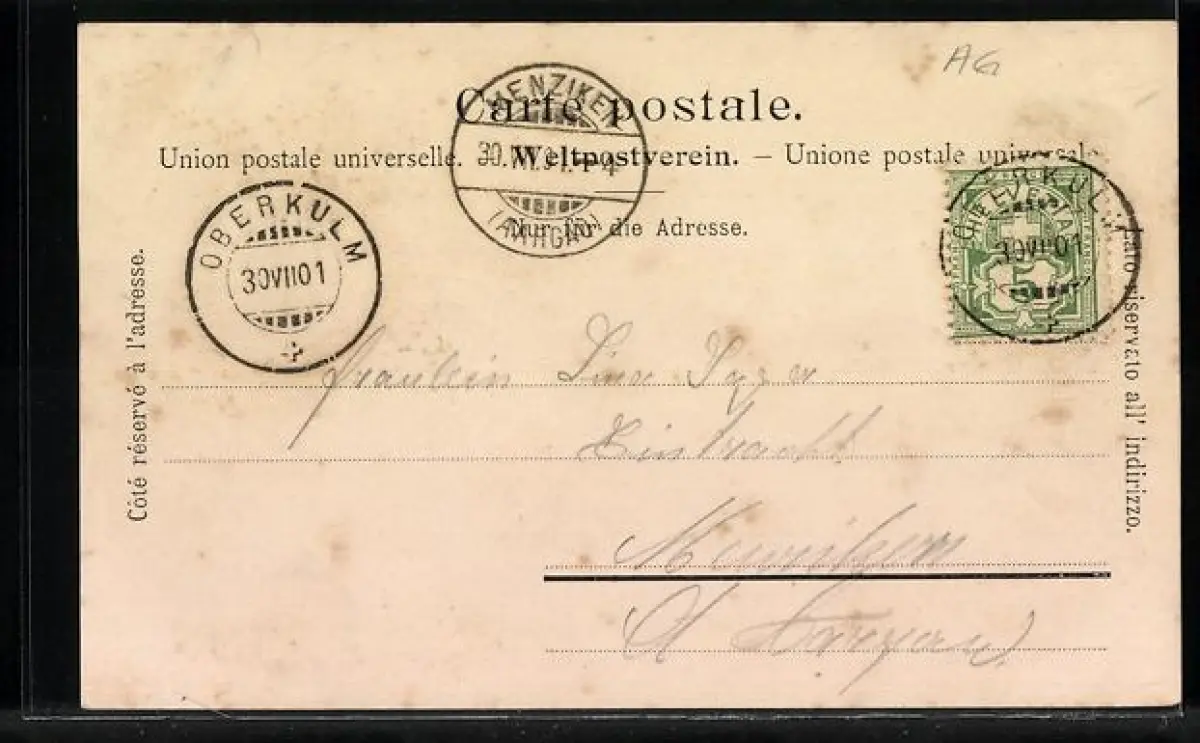 AG
Carte postale.
MENZIKEN
30.VII.01.-4
(AARGAU)
Union postale universelle. – Weltpostverein. – Unione postale universale.
Nur für die Adresse.
OBERKULM
30VII01
OBERKULM
30VII01
5
Côté réservé à l'adresse.
Lato riservato all' indirizzo.
Fräulein Lina
Eintracht
Menziken